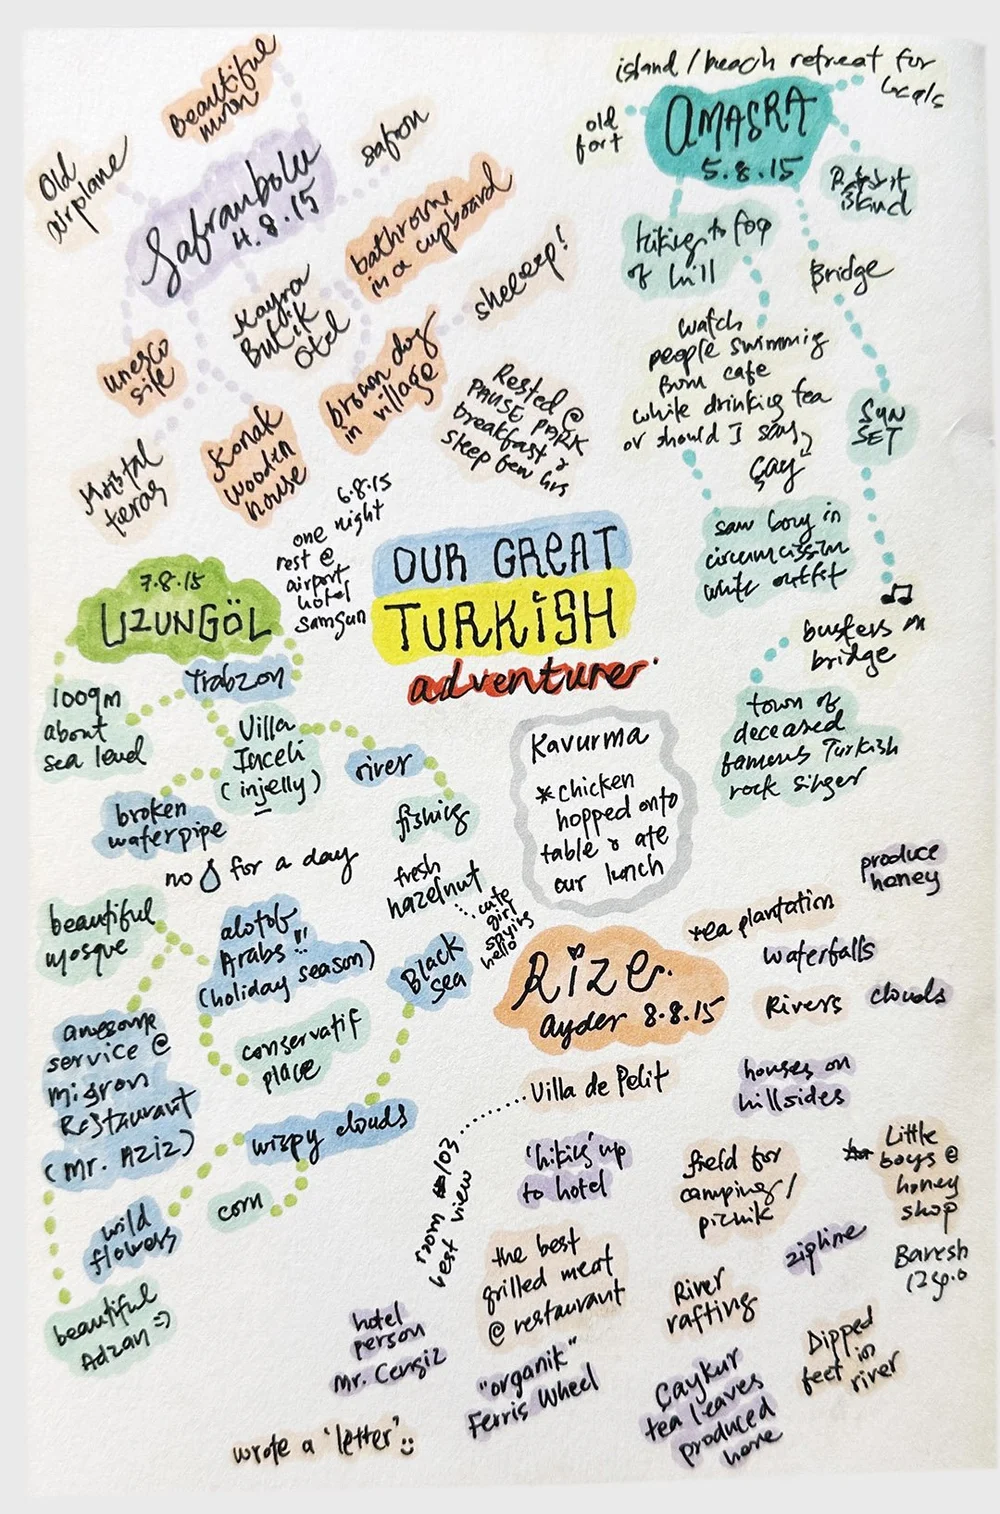 Beautiful
moon
Old
airplane
Safranbolu
4.8.15
safron
bathroome
in a cupboard
sheeep!
Kayra
Butik
Otel
unesco
site
brown dog
in village
Konak
wooden
house
teras
Rested @
PAUSE PARK
breakfast &
sleep few hrs
island / beach retreat for
locals
AMASRA
5.8.15
old
fort
island
hiking to top
of hill
Bridge
watch
people swimming
from cafe
while drinking tea
or should I say
Çay
SUN
SET
saw boy in
circumcission
white outfit
buskers on
bridge
town of
deceased
famous Turkish
rock singer
6.8.15
one night
rest @
airport
hotel
samsun
OUR GREAT
TURKiSH
adventure
7.8.15
UZUNGÖL
Trabzon
1009m
about
sea level
Villa
Inceli
(injelly)
river
fishing
broken
waterpipe
no 💧 for a day
fresh
hazelnut
beautiful
mosque
alotof
Arabs !!
(holiday season)
Black
sea
conservatif
place
awesome
service @
migron
Restaurant
(Mr. Aziz)
wispy clouds
corn
wild
flowers
beautiful
Adzan =)
Kavurma
* chicken
hopped onto
table & ate
our lunch
cute
girl
saying
hello
Rize
ayder 8.8.15
produce
honey
tea plantation
waterfalls
Rivers
clouds
Villa de Pelit
houses on
hillsides
room 103
best view
'hiking' up
to hotel
field for
camping /
picnik
Little
boys @
honey
shop
Baresh
zipline
the best
grilled meat
@ restaurant
River
rafting
Dipped
feet in
river
hotel
person
Mr. Cengiz
"organik"
Ferris Wheel
Çaykur
tea leaves
produced
here
wrote a 'letter' :)